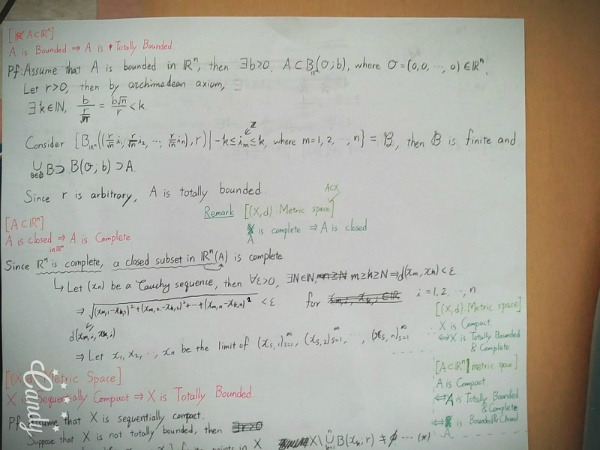 [A⊂ℝⁿ]
A is Bounded ⇒ A is Totally Bounded
Pf: Assume that A is bounded in ℝⁿ, then ∃b>0, A⊂B(O;b), where O=(0,0,…,0)∈ℝⁿ.
Let r>0, then by archimedean axiom,
∃k∈ℕ, b/(r/√n) = b√n/r < k
Consider {B_ℝⁿ((r/√n i₁, r/√n i₂, …, r/√n iₙ), r) | -k≤iₘ≤k, where m=1,2,…,n} = ℬ, then ℬ is finite and
∪ B ⊃ B(O,b) ⊃ A.
Since r is arbitrary, A is totally bounded.
Remark [(X,d): Metric space] A⊂X
A is complete ⇒ A is closed
[A⊂ℝⁿ]
A is closed in ℝⁿ ⇒ A is Complete
Since ℝⁿ is complete, a closed subset in ℝⁿ(A) is complete
↳ Let (xₙ) be a Cauchy sequence, then ∀ε>0, ∃N∈ℕ, m≥k≥N ⇒ d(xₘ,xₖ)<ε
⇒ √((xₘ,₁-xₖ,₁)²+(xₘ,₂-xₖ,₂)²+…+(xₘ,ₙ-xₖ,ₙ)²) < ε for i=1,2,…,n
d(xₘ,ᵢ, xₖ,ᵢ)
⇒ Let x₁, x₂, …, xₙ be the limit of
[(X,d): Metric space]
X is Compact
⇔ X is Totally Bounded
& Complete
[A⊂ℝⁿ] metric space
A is Compact
⇔ A is Totally Bounded
& Complete
⇔ A is Bounded & Closed
Metric Space]
X is Sequentially Compact ⇒ X is Totally Bounded
Pf: Assume that X is sequentially compact.
Suppose that X is not totally bounded, then
points in X X\∪B(xₖ;r) ≠ ∅ … (*)
Candy